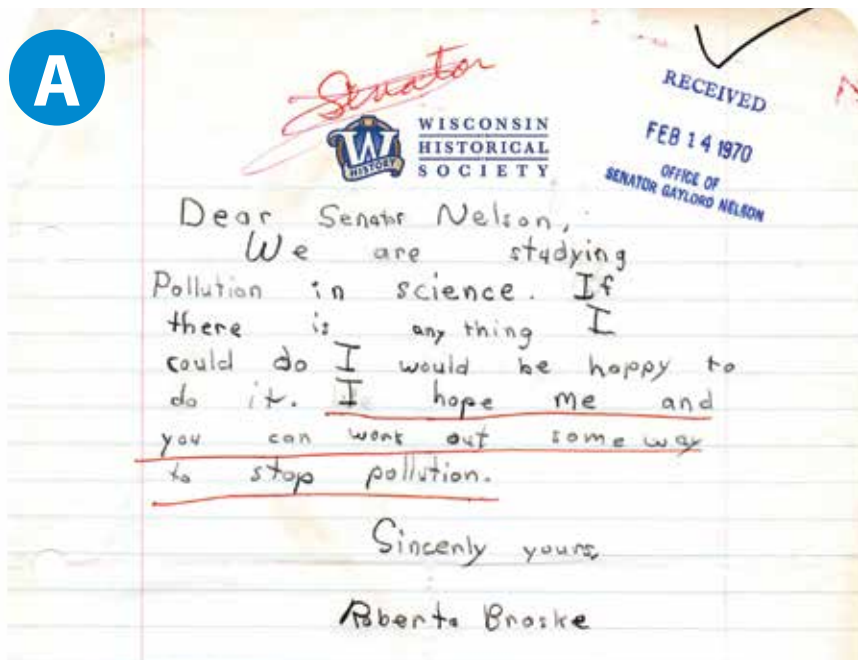 A
Senator
WISCONSIN
HISTORICAL
SOCIETY
W
HISTORY
RECEIVED
FEB 14 1970
OFFICE OF
SENATOR GAYLORD NELSON
Dear Senator Nelson,
We are studying
Pollution in science. If
there is any thing I
could do I would be happy to
do it. I hope me and
you can work out some way
to stop pollution.
Sincenly yours,
Roberta Broske